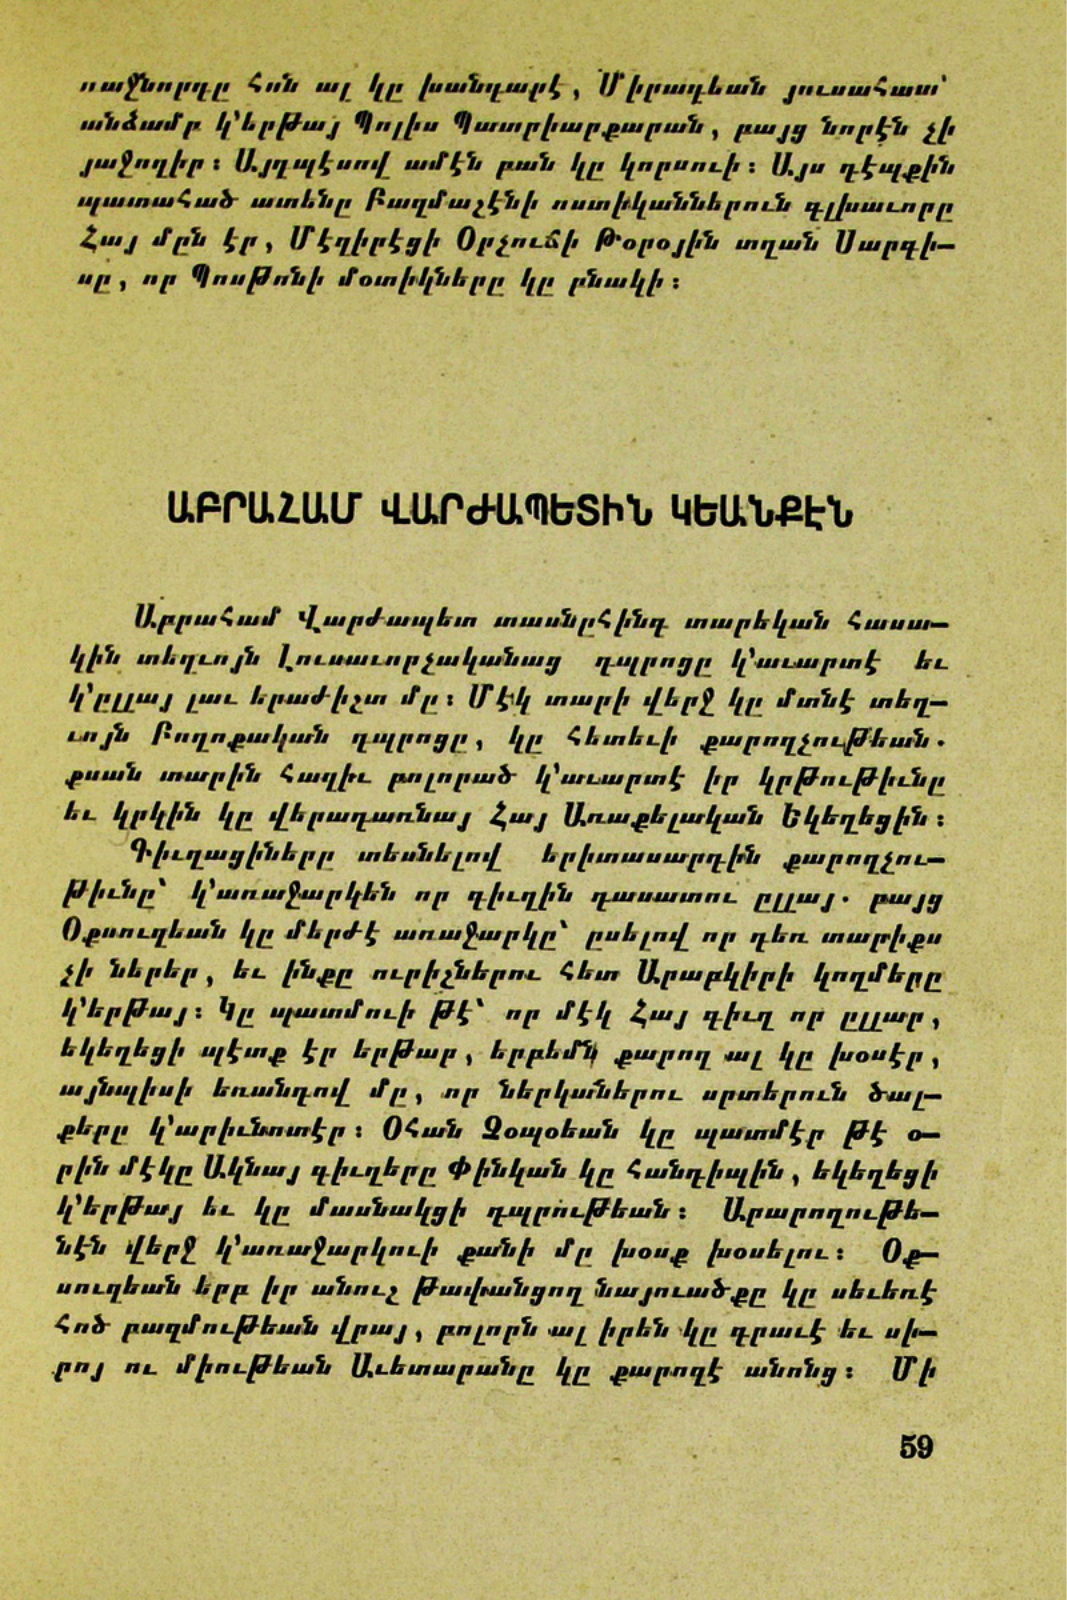 ռաջնորդը հոն ալ կը խանդարէ, Միրադեան յուսահատ՝
անձամբ կ՚երթայ Պոլիս Պատրիարքարան, բայց նորէն չի
յաջողիր։ Այդպէսով ամէն բան կը կորսուի։ Այս դէպքին
պատահած ատենը Բաղմաշէնի ոստիկաններուն գլխաւորը
Հայ մըն էր, Մէզիրէցի Օրչուճի Թօրօյին տղան Սարգի—
սը, որ Պոսթոնի մօտիկները կը բնակի։
ԱԲՐԱՀԱՄ ՎԱՐԺԱՊԵՏԻՆ ԿԵԱՆՔԷՆ
Աբրահամ Վարժապետ տասնըհինգ տարեկան հասա—
կին տեղւոյն Լուսաւորչականաց դպրոցը կ՚աւարտէ եւ
կ՚ըլլայ լաւ երաժիշտ մը։ Մէկ տարի վերջ կը մտնէ տեղ—
ւոյն Բողոքական դպրոցը, կը հետեւի քարոզչութեան.
քսան տարին հազիւ բոլորած կ՚աւարտէ իր կրթութիւնը
եւ կրկին կը վերադառնայ Հայ Առաքելական Եկեղեցին։
Գիւղացիները տեսնելով երիտասարդին քարոզչու—
թիւնը՝ կ՚առաջարկեն որ գիւղին դասատու ըլլայ. բայց
Օքսուզեան կը մերժէ առաջարկը՝ ըսելով որ դեռ տարիքս
չի ներեր, եւ ինքը ուրիշներու հետ Արաբկիրի կողմերը
կ՚երթայ։ Կը պատմուի թէ՝ որ մէկ Հայ գիւղ որ ըլլար,
եկեղեցի պէտք էր երթար, երբեմն քարոզ ալ կը խօսէր,
այնպիսի եռանդով մը, որ ներկաներու սրտերուն ծալ—
քերը կ՚արիւնոտէր։ Օհան Չօպօեան կը պատմէր թէ օ—
րին մէկը Ակնայ գիւղերը Փինկան կը հանդիպին, եկեղեցի
կ՚երթայ եւ կը մասնակցի դպրութեան։ Արարողութե—
նէն վերջ կ՚առաջարկուի քանի մը խօսք խօսելու։ Օք—
սուզեան երբ իր անուշ թափանցող նայուածքը կը սեւեռէ
հոծ բազմութեան վրայ, բոլորն ալ իրեն կը գրաւէ եւ սի—
րոյ ու միութեան Աւետարանը կը քարոզէ անոնց։ Մի
59